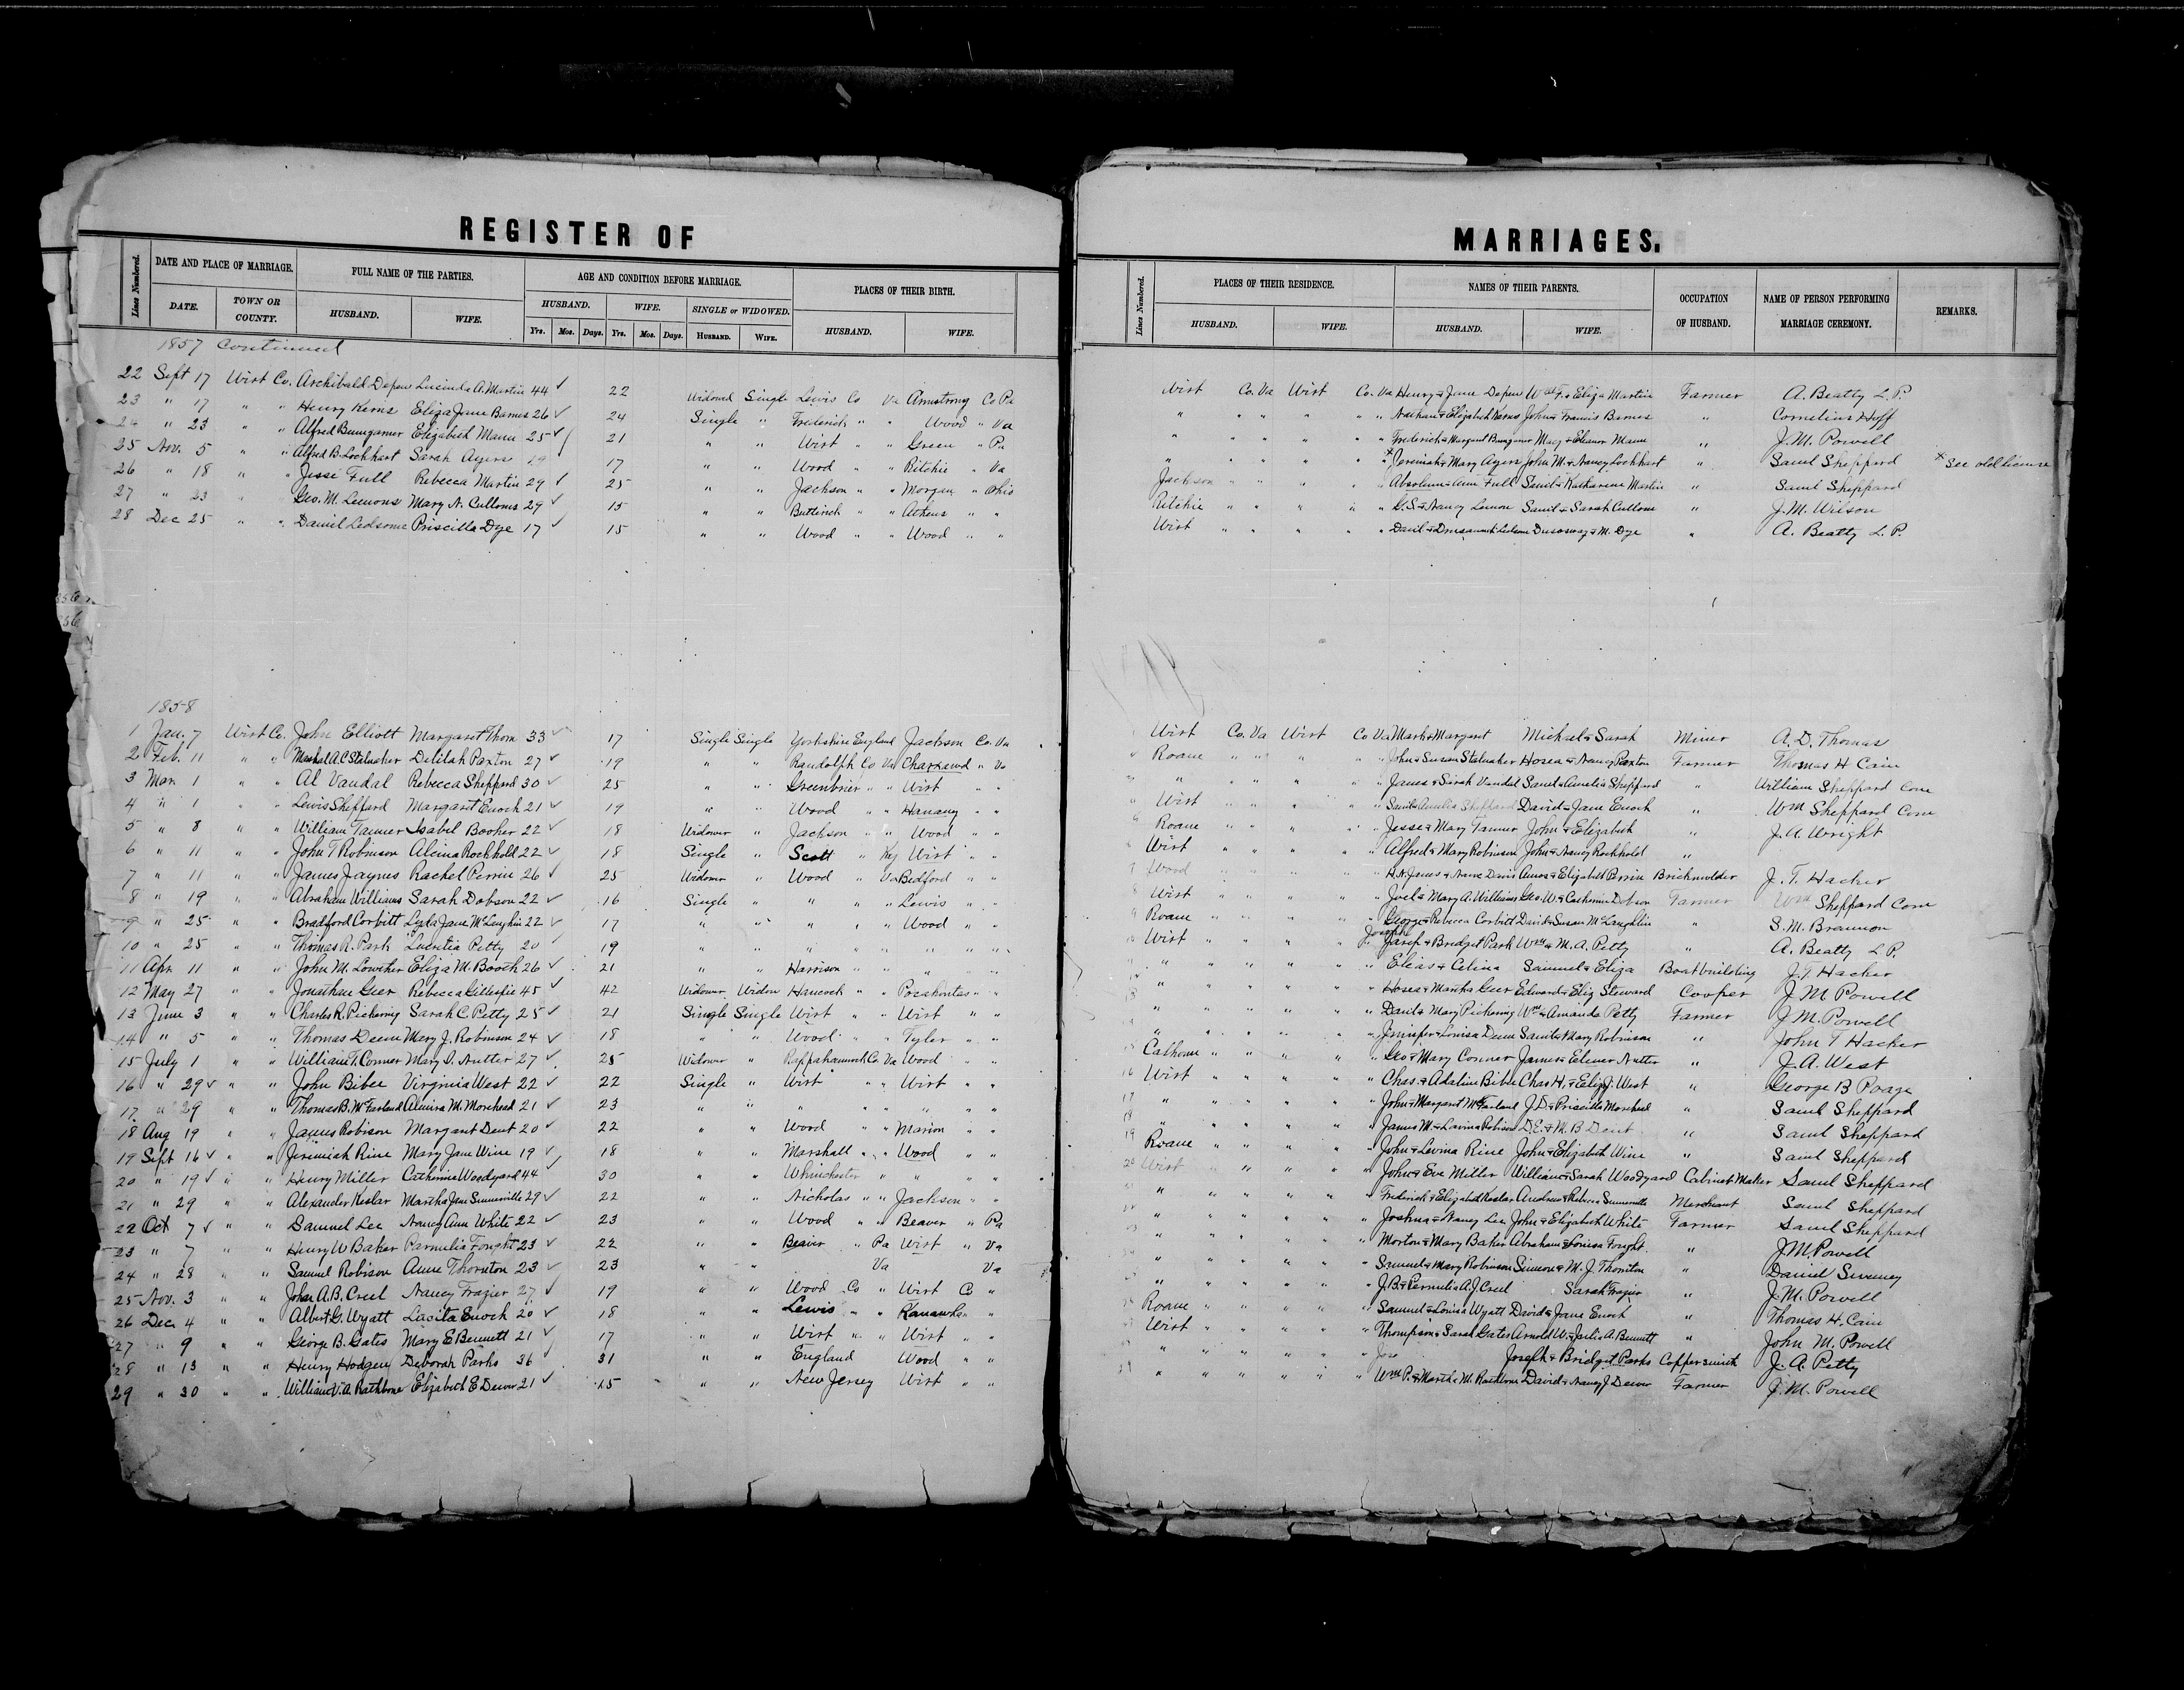 REGISTER OF
Lines Numbered.
DATE AND PLACE OF MARRIAGE.
FULL NAME OF THE PARTIES.
AGE AND CONDITION BEFORE MARRIAGE.
PLACES OF THEIR BIRTH.
DATE.
TOWN OR COUNTY.
HUSBAND.
WIFE.
HUSBAND.
WIFE.
SINGLE or WIDOWED.
HUSBAND.
WIFE.
Yrs. Mos. Days. Yrs. Mos. Days. HUSBAND. WIFE.
1857 Continued
22 Sept 17 Wirt Co. Archibald Depew Lucinda A. Martin 44 ✓ 22 Widowed Single Lewis Co Va Armstrong Co Pa
23 " 17 " " Henry Kerns Eliza Jane Barnes 26 ✓ 24 Single " Frederick " " Wood " Va
24 " 23 " " Alfred Bumgarner Elizabeth Mann 25 ✓ 21 " " Wirt " " Green " Pa
25 Nov. 5 " " Alfred B. Lockhart Sarah Ayers 19 17 " " Wood " " Ritchie " Va
26 " 18 " " Jesse Full Rebecca Martin 29 ✓ 25 " " Jackson " " Morgan " Ohio
27 " 23 " " Geo. M. Lemons Mary N. Culloms 29 ✓ 15 " " " " Athens " "
28 Dec 25 " " Daniel Ledsome Priscilla Dye 17 ✓ 15 " " Wood " " Wood " "
1858
1 Jan. 7 Wirt Co. John Elliott Margaret Thorn 33 ✓ 17 Single Single Yorkshire England Jackson Co. Va
2 Feb. 11 " " Marshal A. C. Stalnaker Delilah Paxton 27 ✓ 19 " " Randolph Co Va " Va
3 Mar 1 " " Al Vandal Rebecca Sheppard 30 ✓ 25 " " Greenbrier " " Wirt " "
4 " 1 " " Lewis Sheppard Margaret Enoch 21 ✓ 19 " " Wood " " " "
5 " 8 " " William Tanner Isabel Booher 22 ✓ 18 Widower " Jackson " " Wood " "
6 " 11 " " John T Robinson Alcina Rockhold 22 ✓ 18 Single " Scott " Ky Wirt " "
7 " 11 " " James Jaynes Rachel Perrin 26 ✓ 25 Widower " Wood " Va Bedford " "
8 " 19 " " Abraham Williams Sarah Dobson 22 ✓ 16 Single " " " " Lewis " "
9 " 25 " " Bradford Corbitt Lyda Jane McLaughlin 22 ✓ 17 " " " " " Wood " "
10 " 25 " " Thomas R. Park Lucretia Petty 20 ✓ 19 " " " " " " " "
11 Apr 11 " " John M. Lowther Eliza M. Booth 26 ✓ 21 " " Harrison " " " "
12 May 27 " " Jonathan Geer Rebecca Gillespie 45 ✓ 42 Widower Widow Hancock " " Pocahontas " "
13 June 3 " " Charles R. Pickering Sarah C. Petty 25 ✓ 21 Single Single Wirt " " Wirt " "
14 " 5 " " Thomas Deem Mary J. Robinson 24 ✓ 18 " " Wood " " Tyler " "
15 July 1 " " William T. Conner Mary I. Nutter 27 ✓ 25 Widower " Rappahannock Co Va Wood " "
16 " 29 ✓ " " John Bibee Virginia West 22 ✓ 22 Single " Wirt " " Wirt " "
17 " 29 " " Thomas B. McFarland Almira M. Morehead 21 ✓ 23 " " " " " " " "
18 Aug 19 " " James Robison Margaret Dent 20 ✓ 22 " " Wood " " Marion " "
19 Sept 16 ✓ " " Jeremiah Rine Mary Jane Wine 19 ✓ 18 " " Marshall " " Wood " "
20 " 19 ✓ " " Henry Miller Catherine Woodyard 44 ✓ 30 " " Whinchester " " " "
21 " 29 " " Alexander Keslar Martha Jane Summerville 29 ✓ 22 " " Nicholas " " Jackson " "
22 Oct 7 ✓ " " Samuel Lee Nancy Ann White 22 ✓ 23 " " Wood " " Beaver " Pa
23 " 7 " " Henry W Baker Parmelia Fought 23 ✓ 22 " " Beaver " Pa Wirt " Va
24 " 28 " " Samuel Robison Anne Thornton 23 ✓ 23 " " Va Va
25 Nov. 3 " " John A. B. Creel Nancy Frazier 27 ✓ 19 " " Wood Co " Wirt Co "
26 Dec 4 " " Albert G. Wyatt Enoch 20 ✓ 18 " " Lewis " " Kanawha " "
27 " 9 " " George B. Gates Mary E Bennett 21 ✓ 17 " " Wirt " " Wirt " "
28 " 13 " " Henry Hodgen Deborah Parks 36 ✓ 31 " " England Wood " "
29 " 30 " " William V. A. Rathbone Elizabeth E. 21 ✓ 15 " " New Jersey Wirt " "
MARRIAGES.
Lines Numbered.
PLACES OF THEIR RESIDENCE.
NAMES OF THEIR PARENTS.
OCCUPATION OF HUSBAND.
NAME OF PERSON PERFORMING MARRIAGE CEREMONY.
REMARKS.
HUSBAND.
WIFE.
HUSBAND.
WIFE.
Wirt Co. Va Wirt Co. Va Henry & Jane Depew Wm F. & Eliza Martin Farmer A. Beatty L. P.
" " " " " " Nathan & Elizabeth Kerns John & Francis Barnes " Cornelius Huff
" " " " " " Frederick & Margaret Bumgarner & Eleanor Mann " J. M. Powell
" " " " " " * Jeremiah & Mary Ayers John M. & Nancy Lockhart " Saml Sheppard * See old license
Jackson " " " " " Absolum & Ann Full Saml & Katharine Martin " Saml Sheppard
Ritchie " " " " " G. S. & Nancy Lemon Saml & Sarah Cullom " J. M. Wilson
Wirt " " " " " & M. Dye " A. Beatty L. P.
Wirt Co. Va Wirt Co Va Mark & Margaret Michael & Sarah Miner A. D. Thomas
Roane " " " " " John & Susan Stalnaker Hosea & Nancy Paxton Farmer Thomas H Cain
" " " " " " James & Sarah Vandel Saml & Amelia Sheppard " William Sheppard Com
Wirt " " " " " Saml & Amelia Sheppard David & Jane Enoch Wm Sheppard Com
Roane " " " " " Jesse & Mary Tanner John & Elizabeth " J. A. Wright
Wirt " " " " " Alfred & Mary Robinson John & Nancy Rockhold "
Wood " " " " " Amos & Elizabeth Perrin Brickmolder J. T. Hacker
Wirt " " " " " Joel & Mary A. Williams Geo. W. & Catherine Dobson Farmer Wm Sheppard Com
Roane " " " " " George & Rebecca Corbitt David & Susan McLaughlin " S. M. Brannon
Joseph
Wirt " " " " " & Bridget Park Wm & M. A. Petty " A. Beatty L P.
" " " " " " Elias & Celina Samuel & Eliza Boatbuilding J. T. Hacker
" " " " " " Hosea & Martha Geer Edward & Eliz Steward Cooper J M Powell
" " " " " " David & Mary Pickering Wm & Amanda Petty Farmer J. M. Powell
" " " " " " & Louisa Deem Saml & Mary Robinson " John T Hacker
Calhoun " " " " " Geo & Mary Conner James & Elenor Nutter " J. A. West
Wirt " " " " " Chas. & Adaline Bibee Chas H. & Eliz J. West " George B Poage
" " " " " " John & Margaret McFarland J. D. & Priscilla Morehead " Saml Sheppard
" " " " " " James M. & Lavina Robison D. E. & M. B Dent " Saml Sheppard
Roane " " " " " John & Levina Rine John & Elizabeth Wine " Saml Sheppard
Wirt " " " " " John & Eve Miller William & Sarah Woodyard Cabinet Maker Saml Sheppard
" " " " " " Frederick & Elizabeth Keslar Andrew & Rebecca Summerville Merchant Saml Sheppard
" " " " " " Joshua & Nancy Lee John & Elizabeth White Farmer Saml Sheppard
" " " " " " Morton & Mary Baker Abraham & Louisa Fought " J M. Powell
" " " " " " Samuel & Mary Robinson Simeon & M. J. Thornton " Daniel Sweeney
" " " " " " J. B. & Permelia A. J. Creel Sarah Frazier " J. M. Powell
Roane " " " " " Samuel & Louisa Wyatt David & Jane Enoch " Thomas H. Cain
Wirt " " " " " Thompson & Sarah Gates Arnold W. & A. Bennett " John M. Powell
" " " " " " Joseph & Bridget Parks Coppersmith J. A. Petty
" " " " " " Wm P. & Martha M. Rathbone David & Nancy J. Farmer J. M. Powell